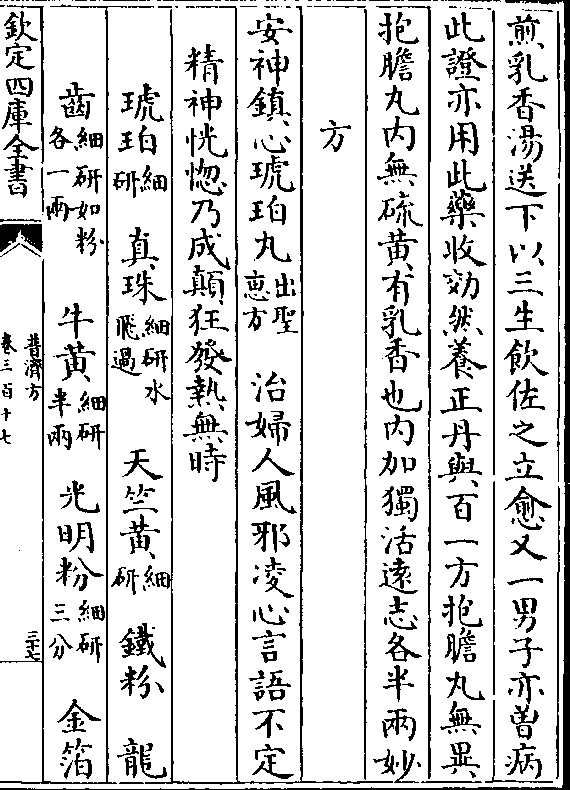 煎乳香湯送下以三生飲佐之立愈又一男子亦曽病
此證亦用此藥收効然養正丹與百一方抱膽丸無異
抱膽丸内無硫黄有乳香也内加獨活遠志各半兩妙
方
安神鎮心琥珀丸出聖恵方 治婦人風邪凌心言語不定
精神恍惚乃成顛狂發熱無時
琥珀細研 真珠細研水飛過 天竺黄細研 鐵粉 龍
齒細研如粉各一兩 牛黄細研半兩 光明粉細研三分 金箔
欽定四庫全書
普濟方
卷三百十七